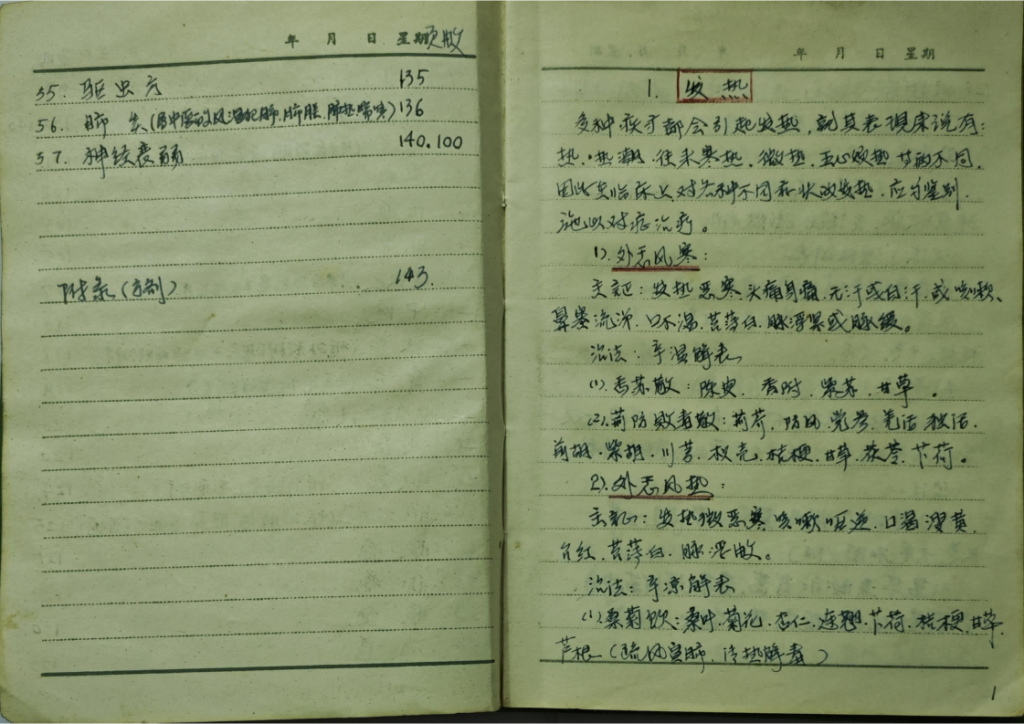 年 月 日 星期 页数
35. 驱虫方 135
56. 肺炎(属中医的风温犯肺,肺胀,肺热喘嗽) 136
37. 神经衰弱 140.100
附录(方剂) 143.
年 月 日 星期
1. 发热
多种疾病都会引起发热,就其表现来说有:
热.潮热.往来寒热.微热.五心烦热等的不同.
因此在临床上对各种不同症状的发热.应予鉴别.
施以对症治疗。
1).外感风寒:
主证:发热恶寒头痛身痛.无汗或自汗.或咳嗽、
鼻塞流涕.口不渴.苔薄白.脉浮紧或脉缓。
治法:辛温解表
(1).香苏散:陈皮.香附.紫苏.甘草.
(2).荆防败毒散:荆芥.防风.党参.羌活.独活.
前胡.柴胡.川芎.枳壳.桔梗.甘草.茯苓.卞荷。
2).外感风热:
主证:发热微恶寒咳嗽咽.口渴溲黄
舌红.苔薄白.脉浮数。
治法:辛凉解表
(1)桑菊饮:桑叶.菊花.杏仁.连翘.卞荷.桔梗.甘草.
芦根(疏风宣肺.清热解毒)
1